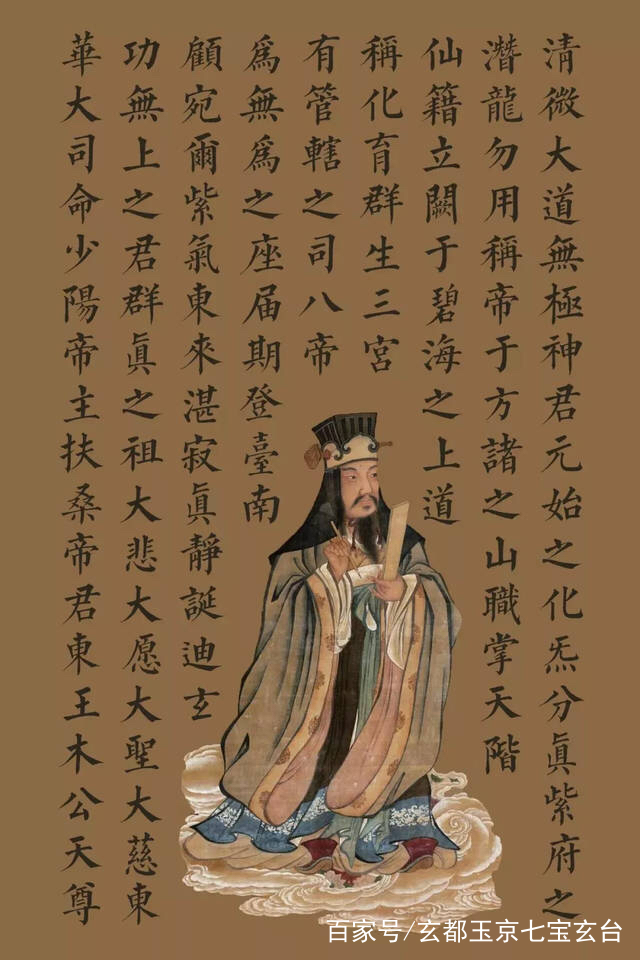 清微大道無極神君元始之化炁分眞紫府之
潛龍勿用稱帝于方諸之山職掌天階
仙籍立闕于碧海之上道
稱化育群生三宮
有管轄之司八帝
爲無爲之座届期登臺南
顧宛爾紫氣東來湛寂眞靜誕迪玄
功無上之君群眞之祖大悲大愿大聖大慈東
華大司命少陽帝主扶桑帝君東王木公天尊
百家号/玄都玉京七宝玄台